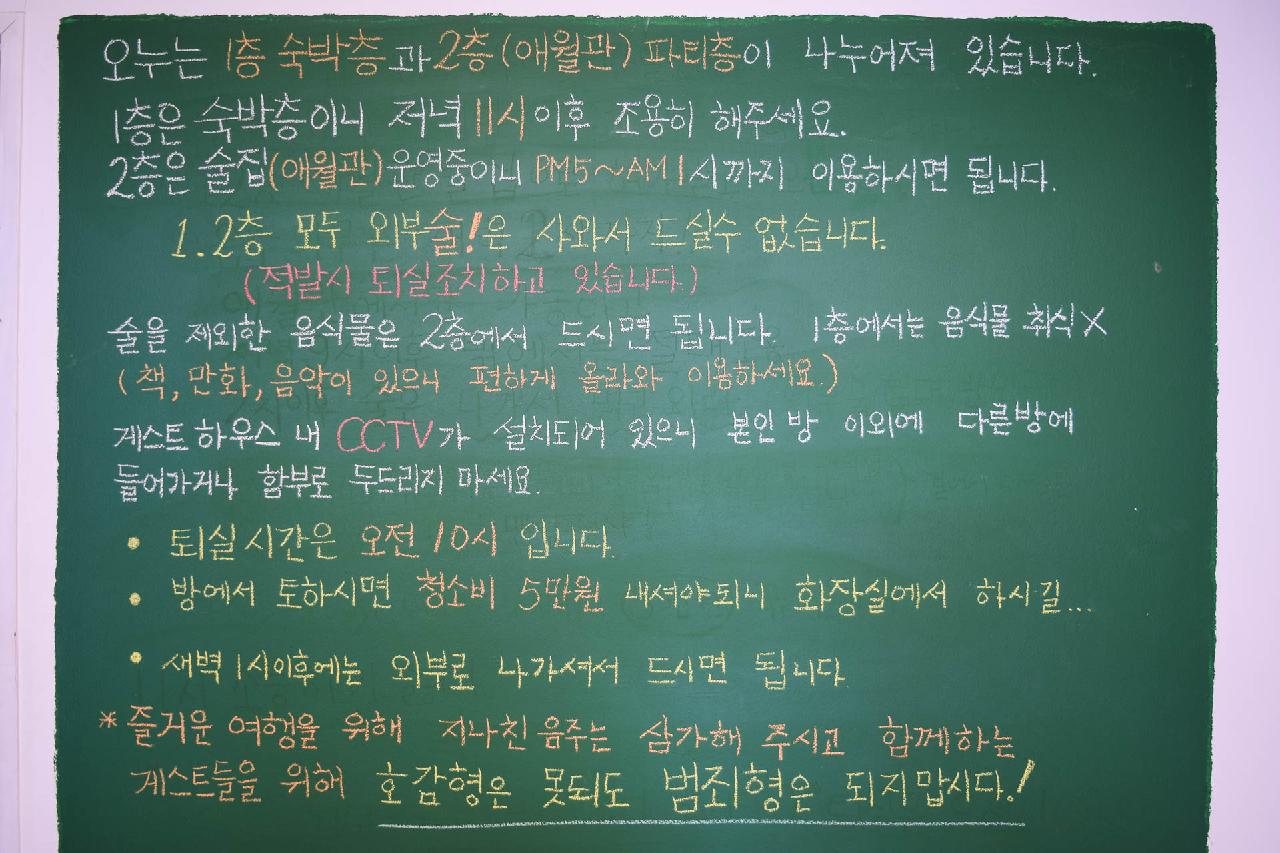 오누는 1층 숙박층과 2층(애월관) 파티층이 나누어져 있습니다.
1층은 숙박층이니 저녁 11시 이후 조용히 해주세요.
2층은 술집(애월관) 운영중이니 PM5~AM1시까지 이용하시면 됩니다.
1.2층 모두 외부술!은 사와서 드실수 없습니다.
(적발시 퇴실조치하고 있습니다.)
술을 제외한 음식물은 2층에서 드시면 됩니다. 1층에서는 음식물 취식X
(책, 만화, 음악이 있으니 편하게 올라와 이용하세요.)
게스트하우스 내 CCTV가 설치되어 있으니 본인 방 이외에 다른방에
들어가거나 함부로 두드리지 마세요.
• 퇴실시간은 오전 10시 입니다.
• 방에서 토하시면 청소비 5만원 내셔야되니 화장실에서 하시길...
• 새벽 1시이후에는 외부로 나가셔서 드시면 됩니다.
* 즐거운 여행을 위해 지나친 음주는 삼가해 주시고 함께하는
게스트들을 위해 호감형은 못되도 범죄형은 되지맙시다!